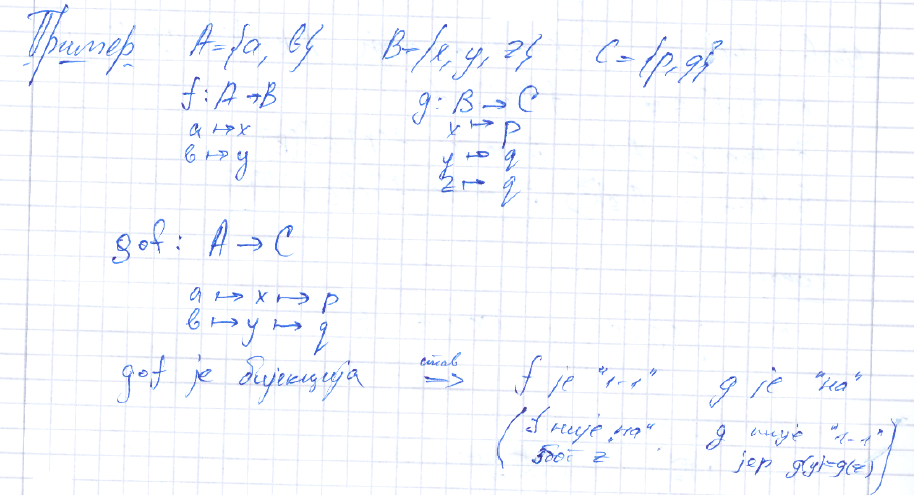 Пример A={a, b} B={x, y, z} C={p, q}
f: A→B g: B→C
a ↦ x x ↦ p
b ↦ y y ↦ q
z ↦ q
g∘f: A→C
a ↦ x ↦ p
b ↦ y ↦ q
g∘f је бијекција став ⇒ f је "1-1" g је "на"
(f није "на" g није "1-1"
због z јер g(y)=g(z))